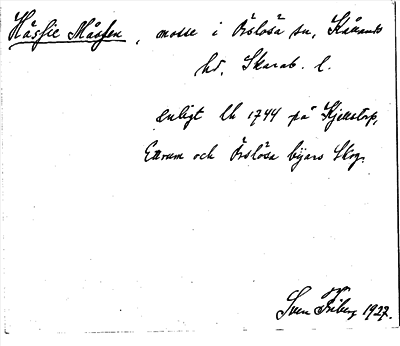 Håssie Måssen, mosse i Örslösa sn, Kållands
hd, Skarab. l.
enligt lk 1744 på Kjellstorp,
Ekrum och Örslösa byars Skog.
Sven Friberg 1927.